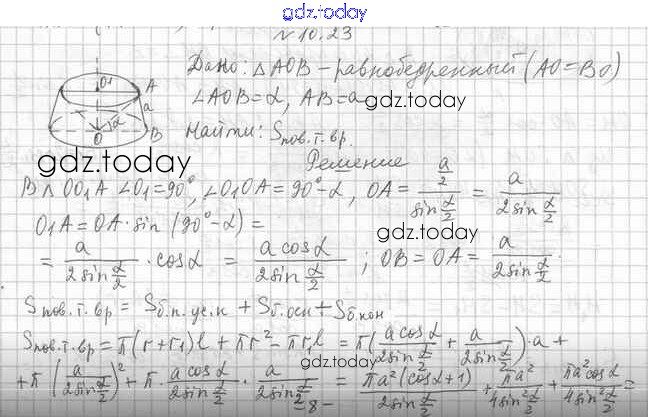 gdz.today
№ 10.23
Дано: △AOB – равнобедренный (AO = BO)
∠AOB = α, AB = a
gdz.today
Найти: Sпов.т.вр.
gdz.today
Решение
В △ OO₁A ∠O₁ = 90°, ∠O₁OA = 90° - α, OA = (a/2)/(sin α/2) = a/(2 sin α/2)
O₁A = OA · sin (90° - α) =
gdz.today
= a/(2 sin α/2) · cos α = (a cos α)/(2 sin α/2) ; OB = OA = a/(2 sin α/2)
Sпов.т.вр = Sб.п.ус.к + Sб.осн + Sб.кон
gdz.today
Sпов.т.вр = π(r + r₁)l + πr² - πr₁l = π((a cos α)/(2 sin α/2) + a/(2 sin α/2)) · a +
+ π (a/(2 sin α/2))² + π · (a cos α)/(2 sin α/2) · a/(2 sin α/2) = (πa²(cos α + 1))/(2 sin α/2) + πa²/(4 sin² α/2) + (πa² cos α)/(4 sin² α/2) =
– 8 –
gdz.today
O₁
A
a
α
O
B